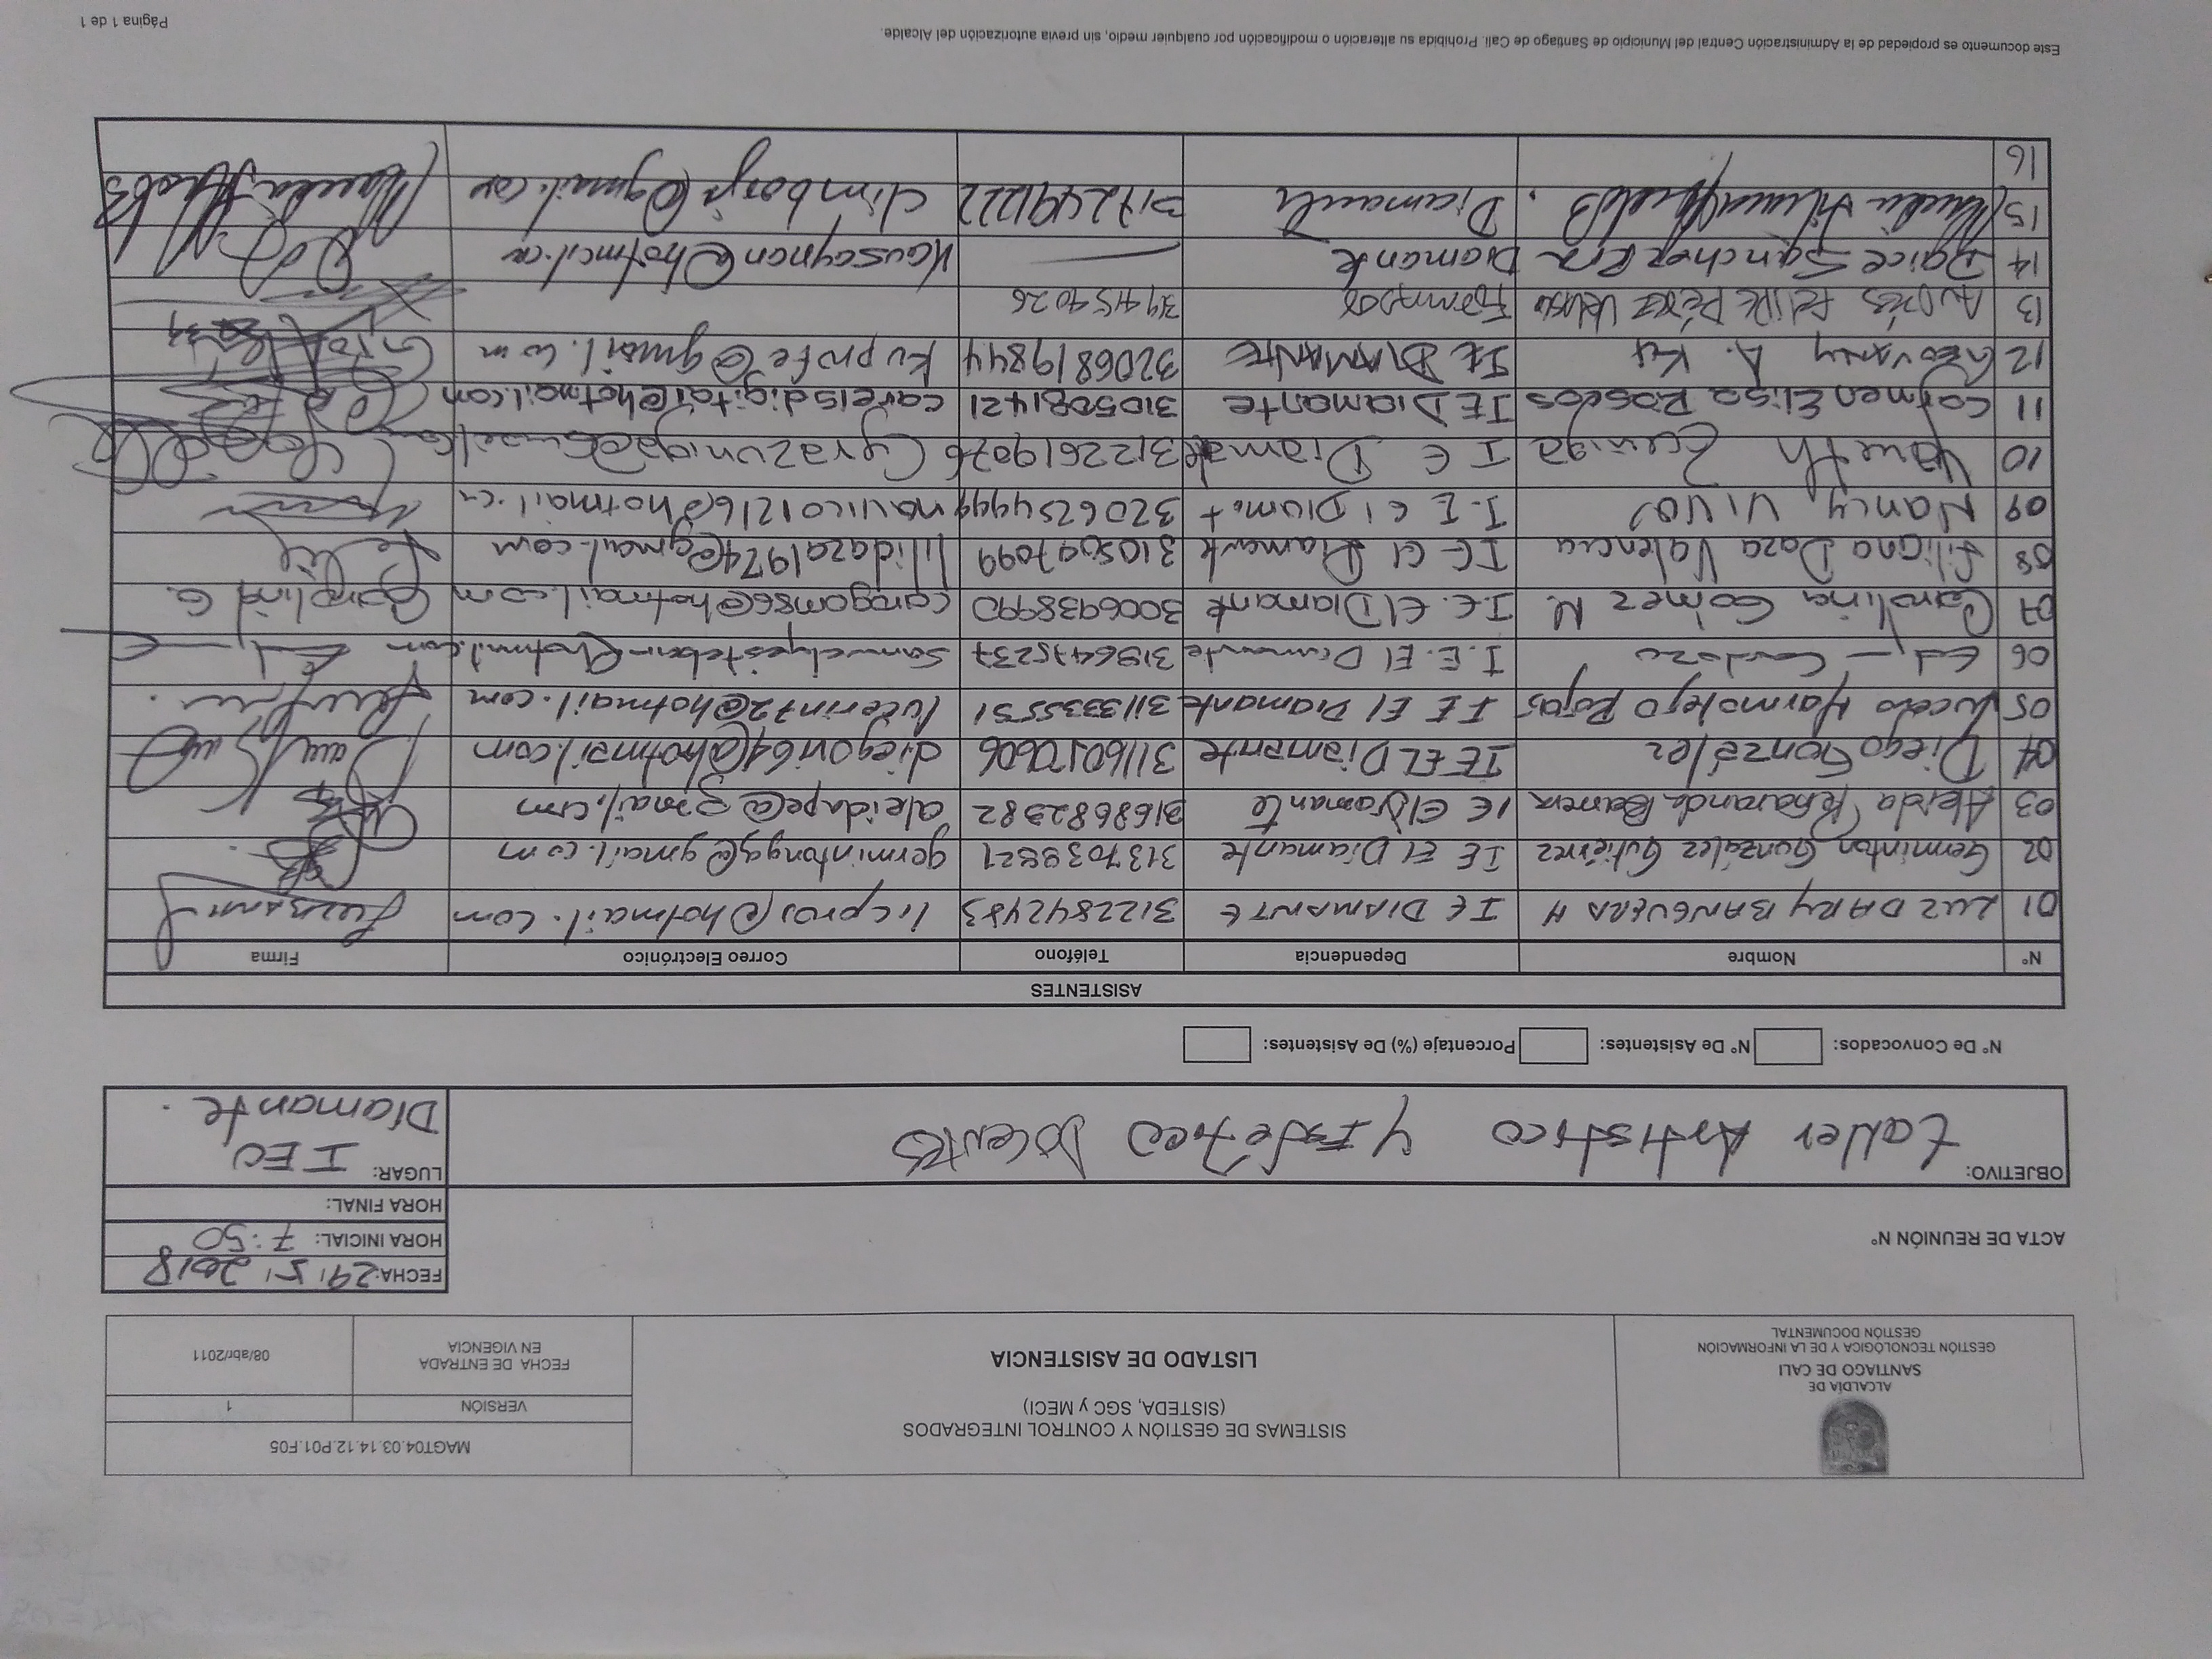 ALCALDÍA DE
SANTIAGO DE CALI
GESTIÓN TECNOLÓGICA Y DE LA INFORMACIÓN
GESTIÓN DOCUMENTAL
SISTEMAS DE GESTIÓN Y CONTROL INTEGRADOS
(SISTEDA, SGC y MECI)
LISTADO DE ASISTENCIA
MAGT04.03.14.12.P01.F05
VERSIÓN 1
FECHA DE ENTRADA
EN VIGENCIA
08/abr/2011
ACTA DE REUNIÓN N°
FECHA: 29/ 5/ 2018
HORA INICIAL: 7:50
HORA FINAL:
OBJETIVO: taller Artistico y Estético Docentes
LUGAR: IEO
Diamante.
N° De Convocados: N° De Asistentes: Porcentaje (%) De Asistentes:
ASISTENTES
N° Nombre Dependencia Teléfono Correo Electrónico Firma
01 LUZ DARY BANGUERA H IE DIAMANTE 3122842483 licpros@hotmail.com
02 Germinton González Gutiérrez IE El Diamante germintongg@gmail.com
03 Aleida Peñaranda Barrera IE El Diamante 3168682382 aleidape@gmail.com
04 Diego González IE EL Diamante 3116050606 diegovi64@hotmail.com
05 Lucero Marmolejo Rojas IE El Diamante 3113335551 lucerin72@hotmail.com
06 Cardozo I.E. El Diamante samuelyesteban@hotmail.com
07 Carolina Gómez M. I.E. El Diamante 3006938990 carogom86@hotmail.com Carolina G.
08 Liliana Daza Valencia IE El Diamante 3105097099 lilidaza1974@gmail.com
09 Nancy Vivas I.E El Diamt 3206254999 navico1216@hotmail.co
10 Yaneth Zuñiga I E Diamate 3122619076 Cyrazuniga@Gmail.com
11 Carmen Elisa Riascos IE Diamante 3105081421 @hotmail.com
12 GEOVANY A. Ku IE DIAMANTE 3206819844 kuprofe@gmail.com
13 Andrés Felipe Pérez Velasco Formador 3194154026
14 Daice Sanchez Diamante — Kausaynan@hotmail.co
15 Claudia Liliana Diamante 3172491222 climborja@gmail.com
16
Este documento es propiedad de la Administración Central del Municipio de Santiago de Cali. Prohibida su alteración o modificación por cualquier medio, sin previa autorización del Alcalde.
Página 1 de 1